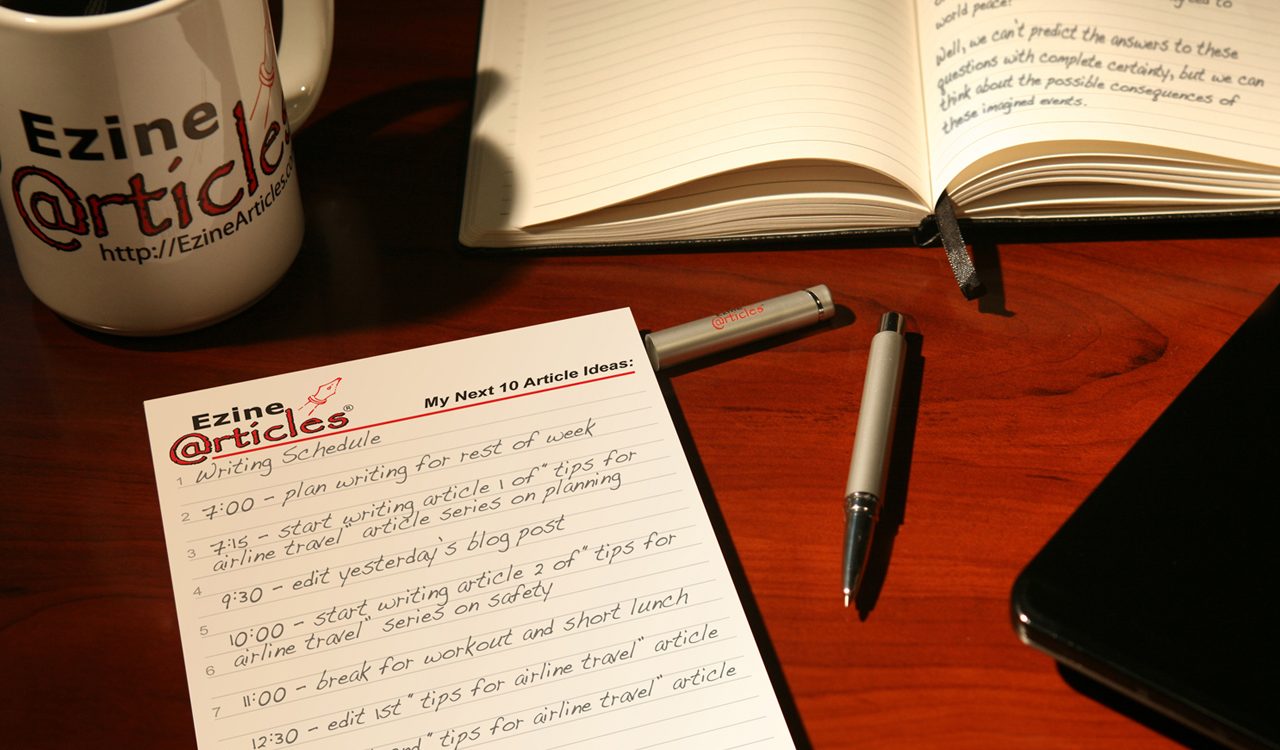 Ezine
@rticles
http://EzineArticles.c
world peace?
Well, we can't predict the answers to these
questions with complete certainty, but we can
think about the possible consequences of
these imagined events.
@rticles
Ezine
@rticles®
My Next 10 Article Ideas:
Writing Schedule
1
7:00 - plan writing for rest of week
2
7:15 - start writing article 1 of "tips for
3
airline travel" article series on planning
4
9:30 - edit yesterday's blog post
5
10:00 - start writing article 2 of "tips for
6
airline travel" series on safety
7
11:00 - break for workout and short lunch
12:30 - edit 1st "tips for airline travel" article
"tips for airline travel" article